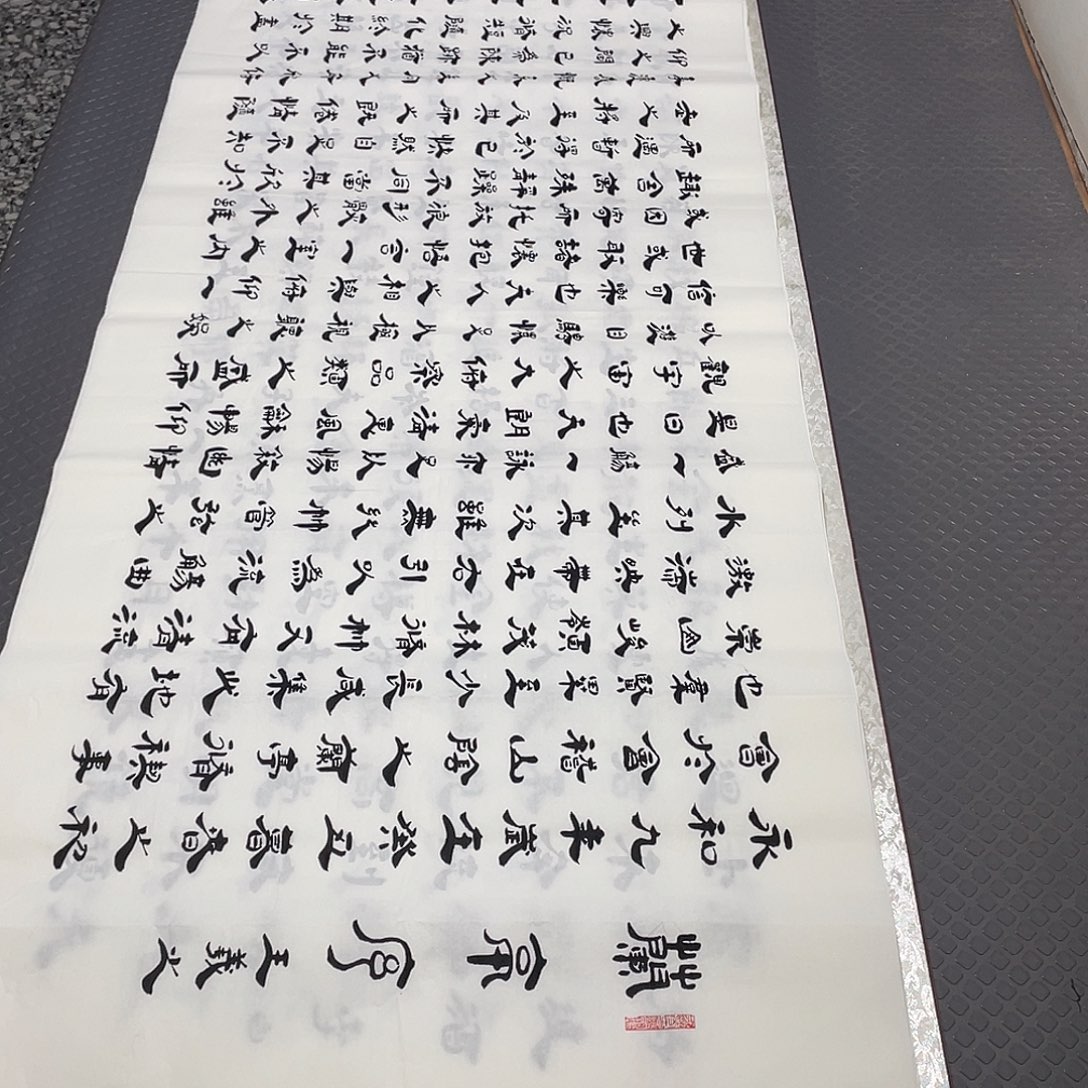 蘭亭序 王羲之
永和九年歲在癸丑暮春之初
會於會稽山陰之蘭亭脩禊事
也羣賢畢至少長咸集此地有
崇山峻嶺茂林脩竹又有清流
激湍映帶左右引以為流觴曲
水列坐其次雖無絲竹管弦之
盛一觴一詠亦足以暢敘幽情
是日也天朗氣清惠風和暢仰
觀宇宙之大俯察品類之盛所
以遊目騁懷足以極視聽之娛
信可樂也夫人之相與俯仰一
世或取諸懷抱悟言一室之內
或因寄所託放浪形骸之外雖
趣舍萬殊靜躁不同當其欣於
所遇暫得於己快然自足不知
老之將至及其所之既倦情隨